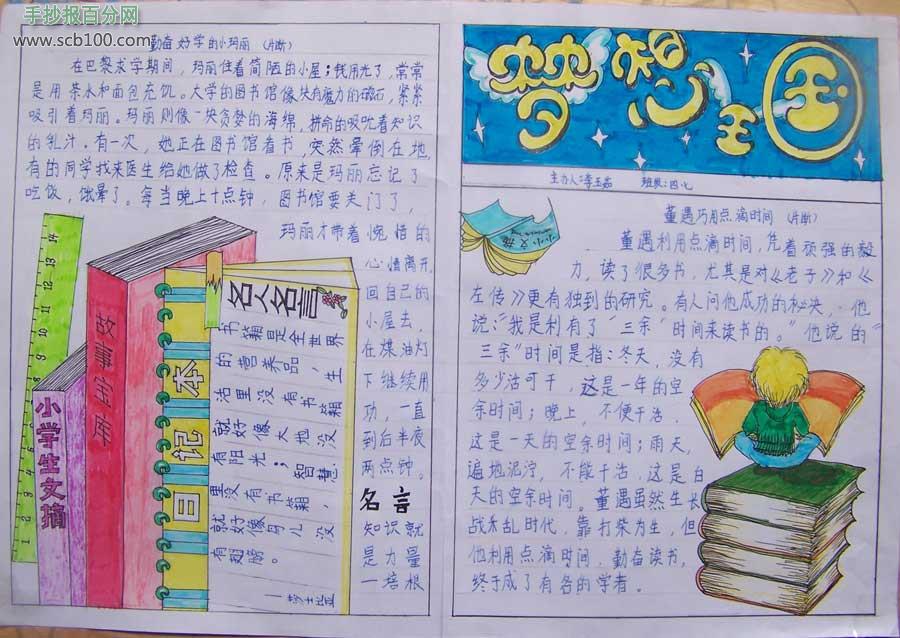 手抄报百分网
www.scb100.com
勤奋好学的小玛丽 (片断)
在巴黎求学期间，玛丽住着简陋的小屋；钱用光了，常常
是用茶水和面包充饥。大学的图书馆像块有魔力的磁石，紧紧
吸引着玛丽。玛丽则像一块贪婪的海绵，拼命的吸吮着知识
的乳汁。有一次，她正在图书馆看书，突然晕倒在地，
有的同学找来医生给她做了检查。原来是玛丽忘记了
吃饭，饿晕了。每当晚上十点钟，图书馆要关门了，
玛丽才带着惋惜的
心情离开，
回自己的
小屋去，
在煤油灯
下继续用
功，一直
到后半夜
两点钟。
名言
知识就
是力量
一培根
小学生文摘
故事宝库
日记本
名人名言
书籍是全世界
的营养品，生
活里没有书籍，
就好像大地没
有阳光；智慧
里没有书籍，
就好像鸟儿没
有翅膀。
—莎士比亚
梦想王国
主办人：李玉茹 班级：四.七
小小文摘
董遇巧用点滴时间 (片断)
董遇利用点滴时间，凭着顽强的毅
力，读了很多书，尤其是对《老子》和《
左传》更有独到的研究。有人问他成功的秘决，他
说：“我是利有了“三余”时间来读书的。”他说的“
三余”时间是指：冬天，没有
多少活可干，这是一年的空
余时间；晚上，不便干活，
这是一天的空余时间；雨天，
遍地泥泞，不能干活，这是白
天的空余时间。董遇虽然生长
战乱时代，靠打柴为生，但
他利用点滴时间，勤奋读书，
终于成了有名的学者。